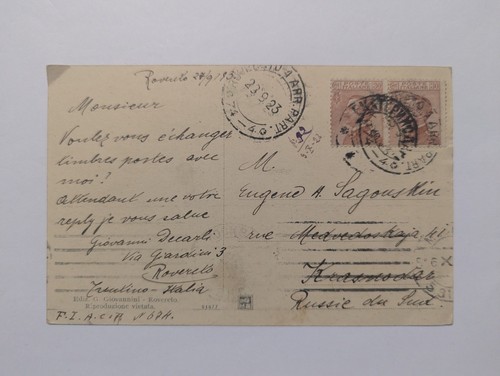 Rovereto 28/9/23
Monsieur
Voulez vous échanger
timbres postes avec
moi?
Attendant une votre
reply je vous salue
Giovanni Decarli
Via Giardini 3
Rovereto
Trentino-Italia
Ediz. G. Giovannini - Rovereto
Riproduzione vietata.
F.I.A.C.R. N
ARR. PART.
M.
Eugenio A. Sagouskin
rue Medvedovskaja
Krasnodar
Russie du Sud